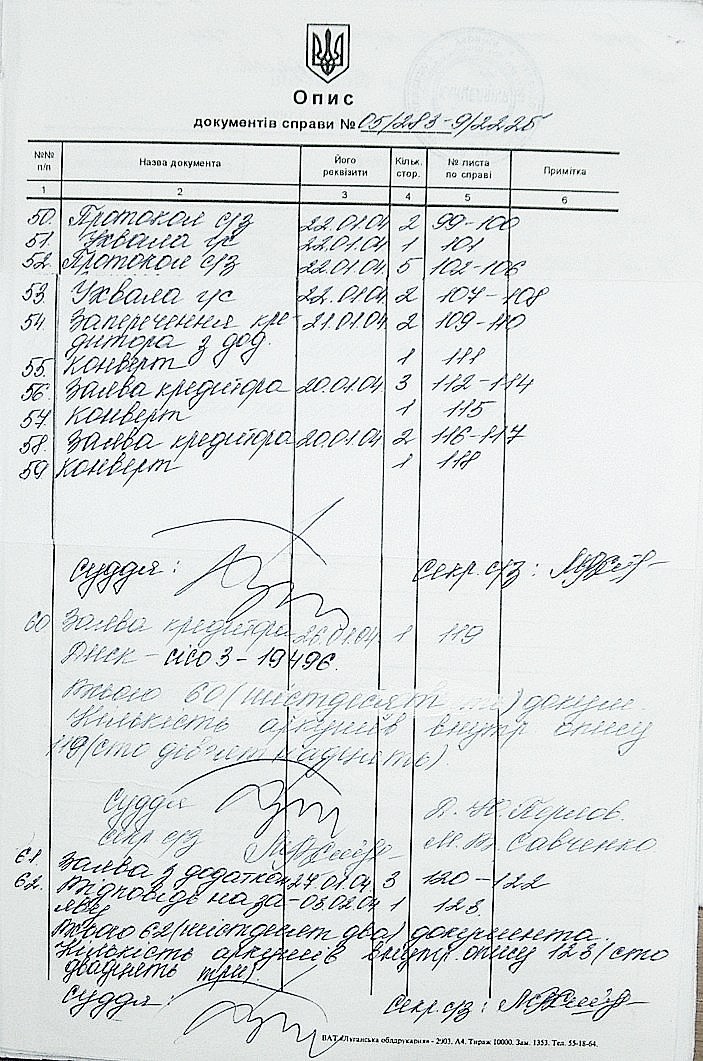 Опис
документів справи № 05/283-9/2225
№№ п/п Назва документа Його реквізити Кільк. стор. № листа по справі Примітка
1 2 3 4 5 6
50. Протокол с/з 22.01.04 2 99-100
51. Ухвала г/с 22.01.04 1 101
52. Протокол с/з 22.01.04 5 102-106
53 Ухвала г/с 22.01.04 2 107-108
54. Заперечення кре- 21.01.04 2 109-110
дитора з дод.
55. Конверт 1 111
56. Заява кредитора 20.01.04 3 112-114
57. Конверт 1 115
58. Заява кредитора 20.01.04 2 116-117
59 Конверт 1 118
Суддя: Секр. с/з:
60 Заява кредитора 26.01.04 1 119
Диск - 19496.
Всього 60 (шістдесят) докум.
Кількість аркушів внутр. опису
119 (сто дев'ятнадцять).
Суддя
Секр с/з М. В. Савченко
61. Заява з додатком 27.01.04 3 120-122
62. Відповідь на за- 03.02.04 1 123.
яву
Всього 62 (шістдесят два) документа.
Кількість аркушів внутр. опису 123 (сто
двадцять три).
Суддя: Секр. с/з:
ВАТ «Луганська облдрукарня» - 2003. А4. Тираж 10000. Зам. 1353. Тел. 55-18-64.